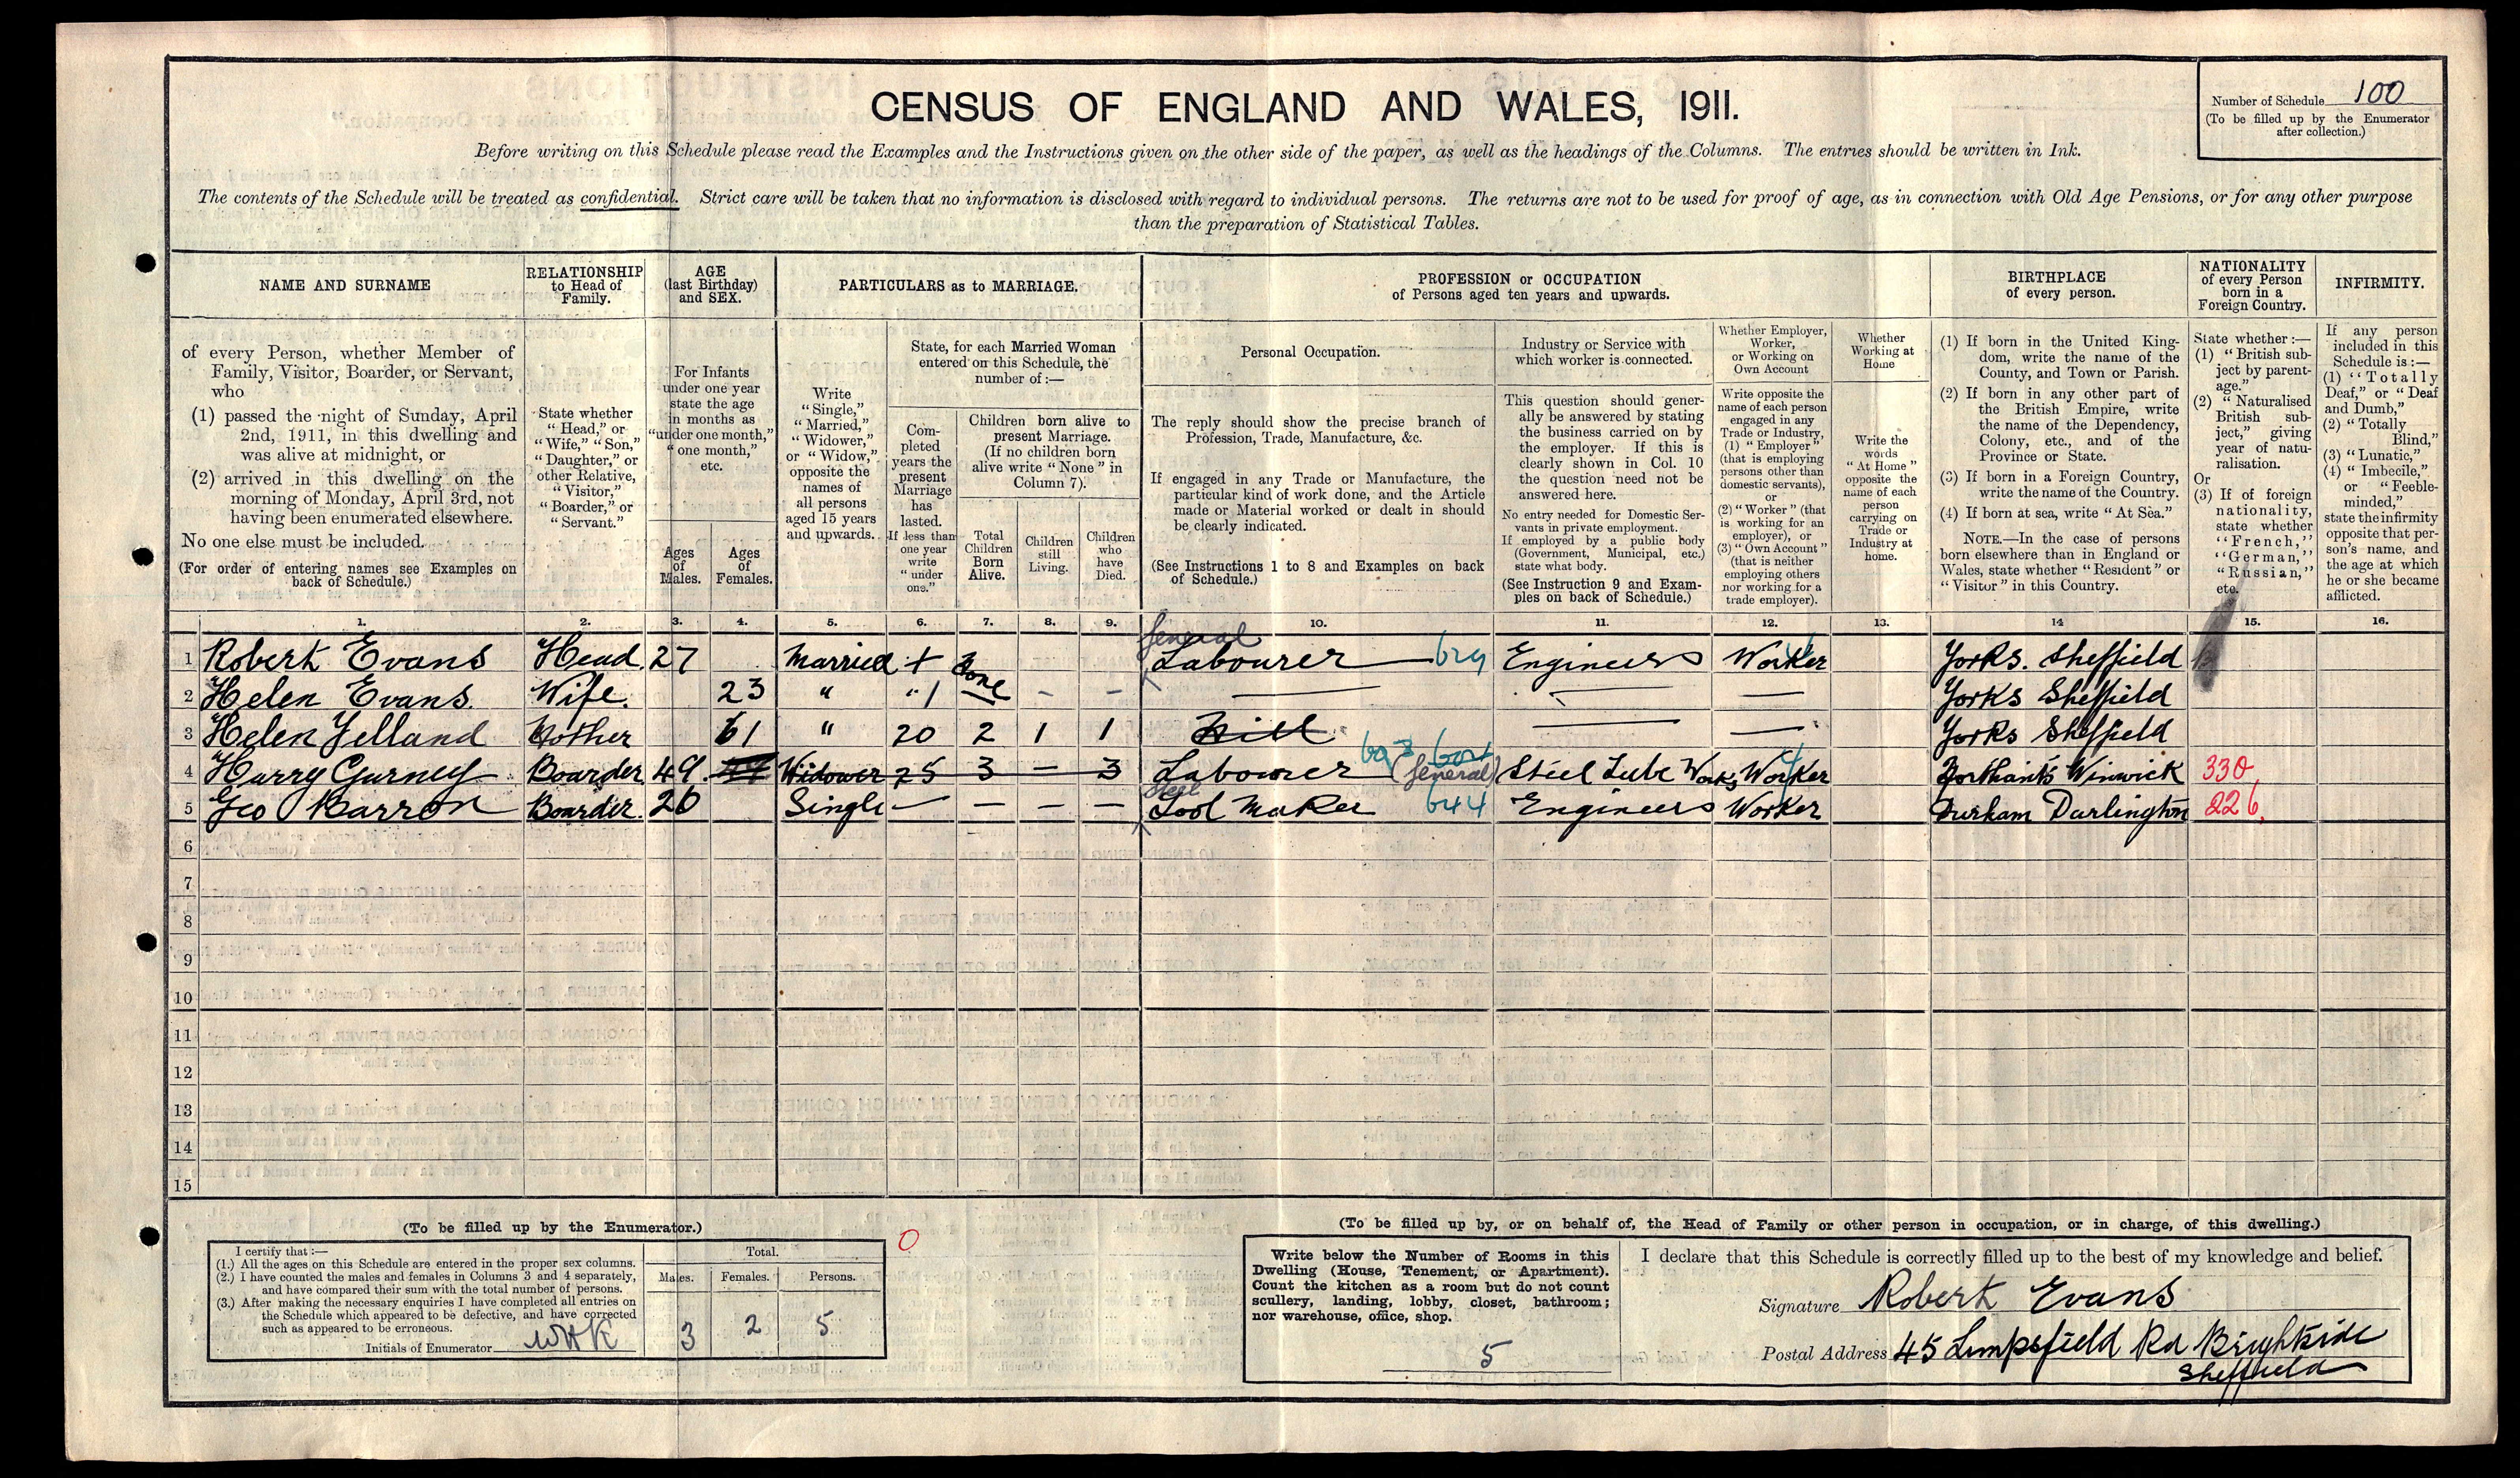 CENSUS OF ENGLAND AND WALES, 1911.
Number of Schedule 100
(To be filled up by the Enumerator
after collection.)
Before writing on this Schedule please read the Examples and the Instructions given on the other side of the paper, as well as the headings of the Columns. The entries should be written in Ink.
The contents of the Schedule will be treated as confidential. Strict care will be taken that no information is disclosed with regard to individual persons. The returns are not to be used for proof of age, as in connection with Old Age Pensions, or for any other purpose
than the preparation of Statistical Tables.
NAME AND SURNAME
of every Person, whether Member of
Family, Visitor, Boarder, or Servant,
who
(1) passed the night of Sunday, April
2nd, 1911, in this dwelling and
was alive at midnight, or
(2) arrived in this dwelling on the
morning of Monday, April 3rd, not
having been enumerated elsewhere.
No one else must be included.
(For order of entering names see Examples on
back of Schedule.)
RELATIONSHIP
to Head of
Family.
State whether
"Head," or
"Wife," "Son,"
"Daughter," or
other Relative,
"Visitor,"
"Boarder," or
"Servant."
AGE
(last Birthday)
and SEX.
For Infants
under one year
state the age
in months as
"under one month,"
"one month,"
etc.
Ages
of
Males.
Ages
of
Females.
PARTICULARS as to MARRIAGE.
Write
"Single,"
"Married,"
"Widower,"
or "Widow,"
opposite the
names of
all persons
aged 15 years
and upwards.
State, for each Married Woman
entered on this Schedule, the
number of :—
Com-
pleted
years the
present
Marriage
has
lasted.
If less than
one year
write
"under
one."
Children born alive to
present Marriage.
(If no children born
alive write "None" in
Column 7).
Total
Children
Born
Alive.
Children
still
Living.
Children
who
have
Died.
PROFESSION or OCCUPATION
of Persons aged ten years and upwards.
Personal Occupation.
The reply should show the precise branch of
Profession, Trade, Manufacture, &c.
If engaged in any Trade or Manufacture, the
particular kind of work done, and the Article
made or Material worked or dealt in should
be clearly indicated.
(See Instructions 1 to 8 and Examples on back
of Schedule.)
Industry or Service with
which worker is connected.
This question should gener-
ally be answered by stating
the business carried on by
the employer. If this is
clearly shown in Col. 10
the question need not be
answered here.
No entry needed for Domestic Ser-
vants in private employment.
If employed by a public body
(Government, Municipal, etc.)
state what body.
(See Instruction 9 and Exam-
ples on back of Schedule.)
Whether Employer,
Worker,
or Working on
Own Account
Write opposite the
name of each person
engaged in any
Trade or Industry,
(1) "Employer"
(that is employing
persons other than
domestic servants),
or
(2) "Worker" (that
is working for an
employer), or
(3) "Own Account"
(that is neither
employing others
nor working for a
trade employer).
Whether
Working at
Home
Write the
words
"At Home"
opposite the
name of each
person
carrying on
Trade or
Industry at
home.
BIRTHPLACE
of every person.
(1) If born in the United King-
dom, write the name of the
County, and Town or Parish.
(2) If born in any other part of
the British Empire, write
the name of the Dependency,
Colony, etc., and of the
Province or State.
(3) If born in a Foreign Country,
write the name of the Country.
(4) If born at sea, write "At Sea."
NOTE.—In the case of persons
born elsewhere than in England or
Wales, state whether "Resident" or
"Visitor" in this Country.
NATIONALITY
of every Person
born in a
Foreign Country.
State whether :—
(1) "British sub-
ject by parent-
age."
(2) "Naturalised
British sub-
ject," giving
year of natu-
ralisation.
Or
(3) If of foreign
nationality,
state whether
"French,"
"German,"
"Russian,"
etc.
INFIRMITY.
If any person
included in this
Schedule is:—
(1) "Totally
Deaf," or "Deaf
and Dumb,"
(2) "Totally
Blind,"
(3) "Lunatic,"
(4) "Imbecile,"
or "Feeble-
minded,"
state the infirmity
opposite that per-
son's name, and
the age at which
he or she became
afflicted.
1. 2. 3. 4. 5. 6. 7. 8. 9. 10. 11. 12. 13. 14 15. 16.
General
1 Robert Evans Head. 27 Married Labourer 629 Engineers Worker Yorks. Sheffield
2 Helen Evans. Wife. 23 " " 1 None – – — — — Yorks Sheffield
3 Helen Yelland Mother 61 " 20 2 1 1 Nill — — Yorks Sheffield
4 Harry Gurney Boarder 49. Widower 25 3 — 3 Labourer (General) Steel Tube Works Worker Northants Winwick 330
Steel
5 Geo Barron Boarder. 26 Single — — — — Tool Maker 644 Engineers Worker Durham Darlington 226.
6
7
8
9
10
11
12
13
14
15
(To be filled up by the Enumerator.)
I certify that :—
(1.) All the ages on this Schedule are entered in the proper sex columns.
(2.) I have counted the males and females in Columns 3 and 4 separately,
and have compared their sum with the total number of persons.
(3.) After making the necessary enquiries I have completed all entries on
the Schedule which appeared to be defective, and have corrected
such as appeared to be erroneous.
Initials of Enumerator WHK
Total.
Males. Females. Persons.
3 2 5
0
(To be filled up by, or on behalf of, the Head of Family or other person in occupation, or in charge, of this dwelling.)
Write below the Number of Rooms in this
Dwelling (House, Tenement, or Apartment).
Count the kitchen as a room but do not count
scullery, landing, lobby, closet, bathroom;
nor warehouse, office, shop.
5
I declare that this Schedule is correctly filled up to the best of my knowledge and belief.
Signature Robert Evans
Postal Address 45 Limpsfield Rd Brightside
Sheffield